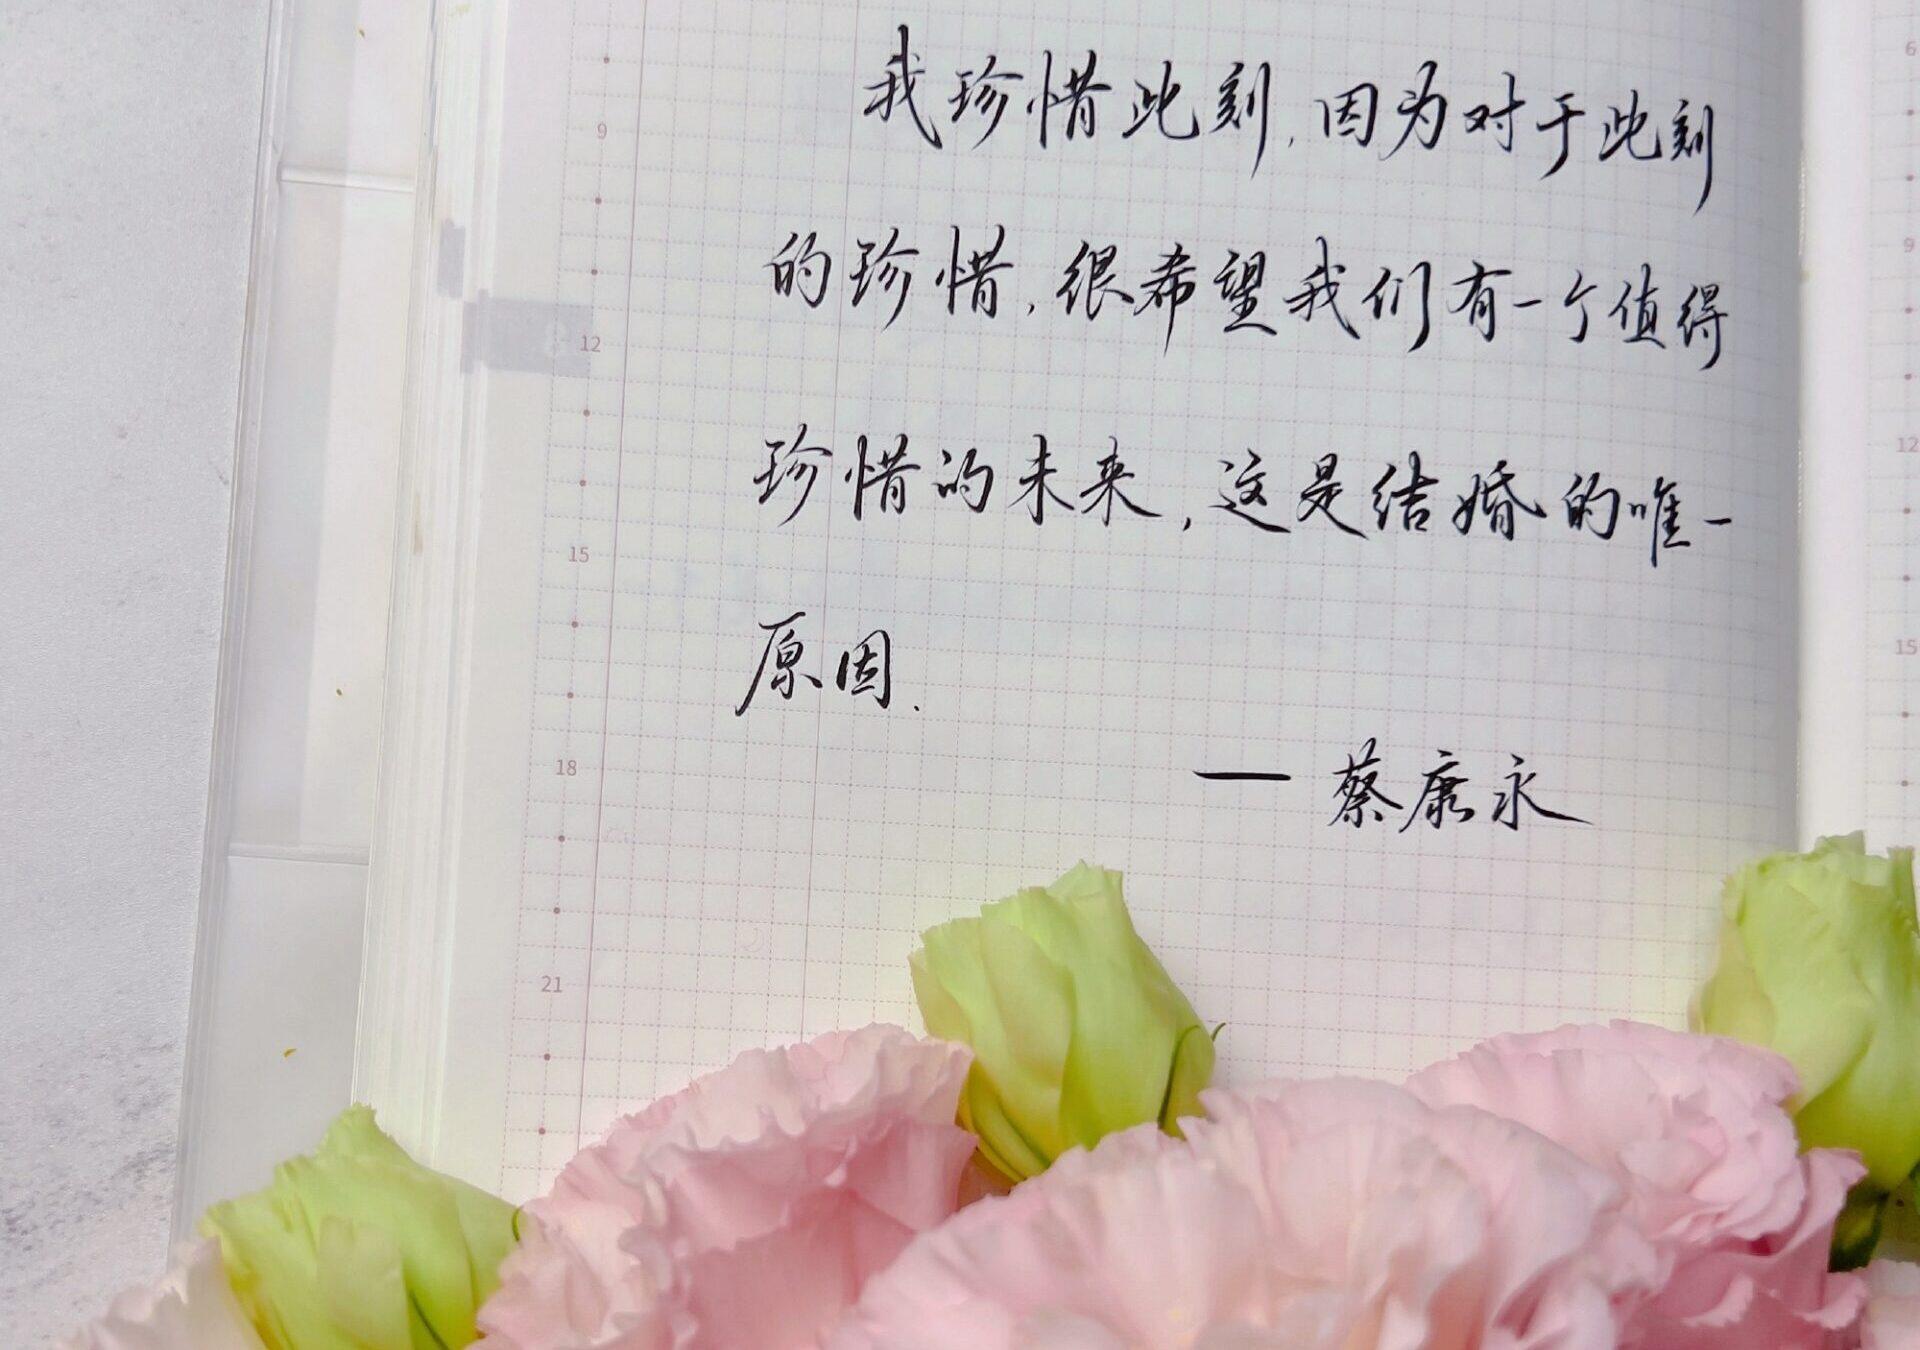 我珍惜此刻，因为对于此刻
的珍惜，很希望我们有一个值得
珍惜的未来，这是结婚的唯一
原因.
— 蔡康永
9
12
15
18
21
6
9
12
15